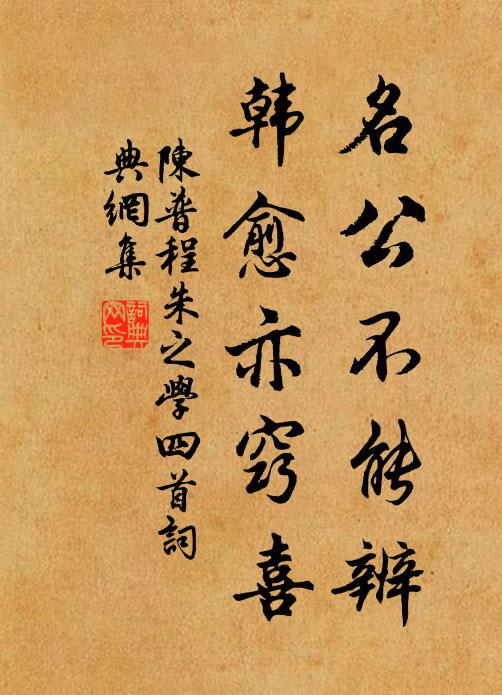 名公不能辨
韩愈亦窃喜
陳普程朱之學四首詞
典網集
詞典
网印